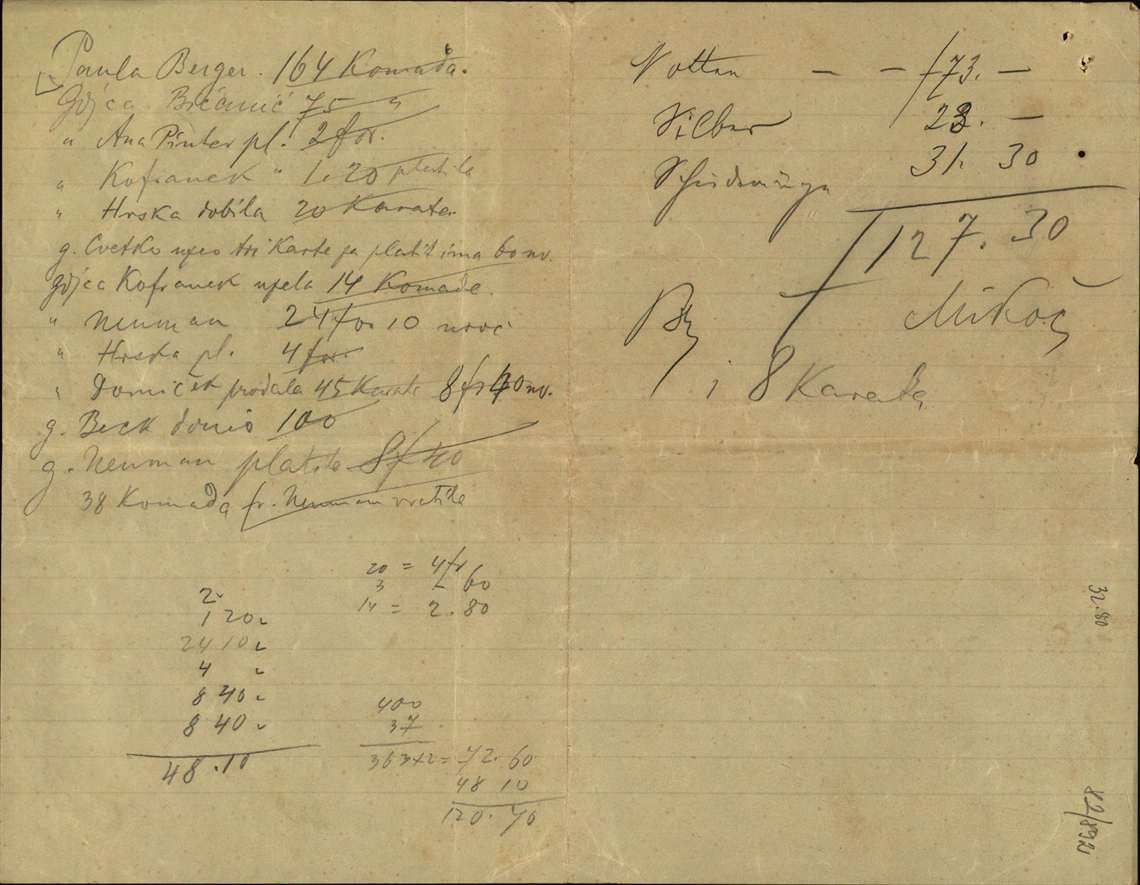 Paula Berger. 164 Komada.
Gdjca Bićanić 75
" Ana Pinter pl. 2 for.
" Kofranek " 1. 20 platila
" Hrska dobila 20 Karata.
g. Cvetko uzeo tri Karte za platit ima 60 nv.
Gdjca Kofranek uzela 14 Komada.
" Neuman 24 for 10 novč
" Hrska pl. 4 for.
" Domićek prodala 45 Karata 8 fr 40 nv.
g. Beck donio 100
g. Neuman platila 8 f 40
38 Komada fr. Neuman vratila
20 = 4 fr
3 - 60
14 = 2.80
2
1 20
24 10
4
8 40
8 40
48.10
400
37
363 x 2 = 72.60
48 10
120.70
- - 173. -
Silber 23. -
31. 30
127. 30
Mikoč
i 8 Karata
32.80
82/892